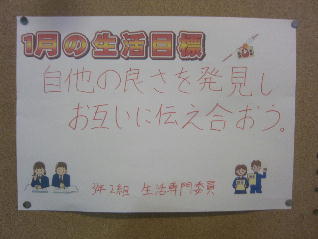 1月の生活目標
自他の良さを発見し
お互いに伝え合おう。
3年2組 生活専門委員